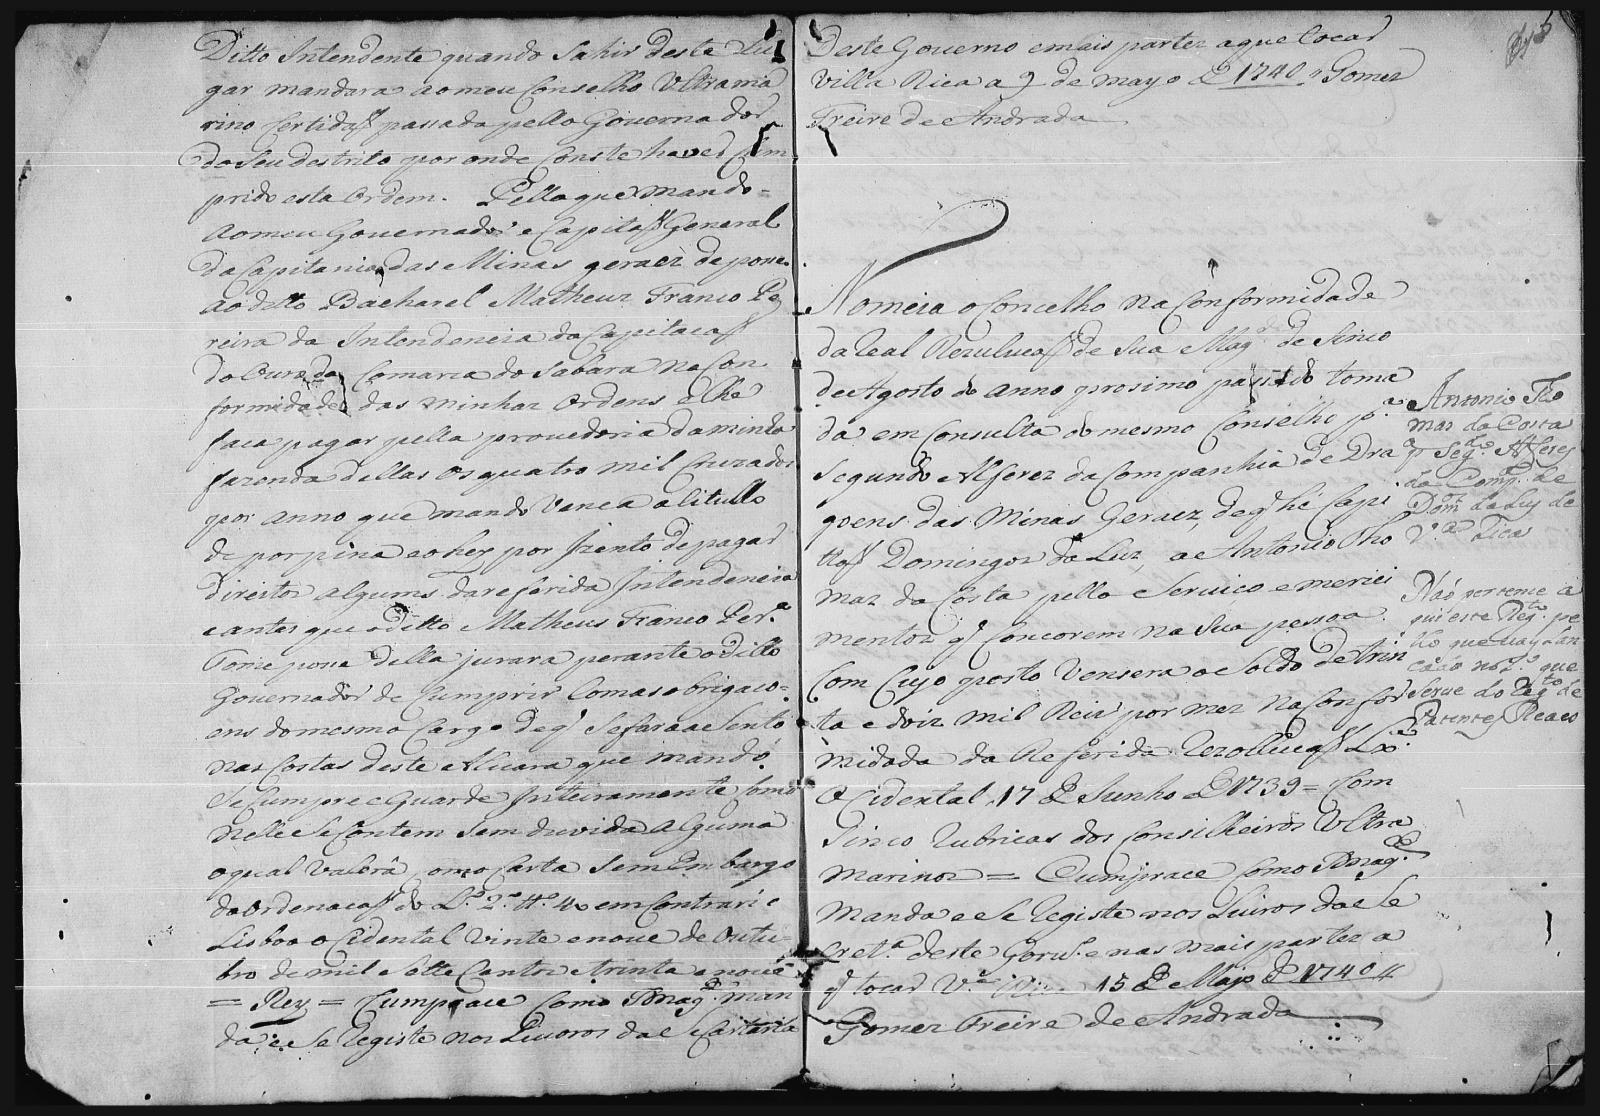 Ditto Intendente quando Sahir deste Lu
gar mandara ao meu Conselho Ultrama
rino Certidaõ passada pello Governador
do Seu destrito por onde Conste haver Cum
prido esta Ordem. Pello que Mando=
ao meu Governador e Capitaõ General
da Capitania das Minas geraez de posse
ao ditto Bacharel Matheuz Franco Pe
reira da Intendencia da Capitacaõ
do Ouro da Comarca do Sabara na Con
formidade das minhas Ordens e lhe
faca pagar pella provedoria da minha
fazenda dellas os quatro mil Cruzados
por anno que mando Venca a titullo
de porpina e o hey por Izento de pagar
direitos alguns da referida Intendencia
e antes que o ditto Matheus Franco Per.ª
Tome posse della jurara perante o ditto
Governador de Cumprir Com as obrigaco=
ens do mesmo Cargo de q̃ Se fara aSento
nas Costas deste Alvara que mando
Se Cumpre e Guarde Inteiramente Como
nelle Se Contem Sem duvida alguma
o qual Valerá como Carta Sem Embargo
da Ordenacaõ do L.º 2.º tt.º 40 em Contrario
Lisboa oCidental Vinte e nove de Outu
bro de mil e Sette Centos e trinta e nove
= Rey = Cumprace Como S Mag.de man
da e Se Registe nos Livros da Secretaria
Deste Governo e mais partez a que tocar
Villa Rica a 9 de mayo de 1740 // Gomez
Freire de Andrada
Nomeia o Concelho na Conformidade
da Real Rezulucaõ de Sua Mag.e de Sinco
de Agosto do anno prosimo passado toma
da em Consulta do mesmo Conselho p.ª
Segundo Alferez da Companhia de Dra
goens das Minas Geraez, de q̃ hé Capi
taõ Domingoz da Luz, a Antonio Tho
maz da Costa pello Servico e mereci
mentoz q̃ Concorem na Sua pessoa.
Com Cujo posto Vensera o Soldo de trin
ta e doiz mil Reiz por mez na Confor
midada da Referida Rezolluçaõ Lx.ª
OCidental 17 de Junho de 1739 = Com
Sinco Rubricas dos Consilheiros Ultra
marinoz = Cumprace como S Mag.de
Manda e Se Registe nos Livros da Se
cret.ª deste Gov.º e nas mais partez a
q̃ tocar V.ª Rica 15 de Mayo de 1740 //
Gomez Freire de Andrada
Antonio Tho
mas da Costa
p.ª Seg.do Alferes
da Comp.ª de
Dom.os da Luz de
V.ª Rica
Naõ pertence a
qui este Reg.to pe
llo que vay lan
cado no L.º que
Serve do Reg.to de
Patentes Reaes